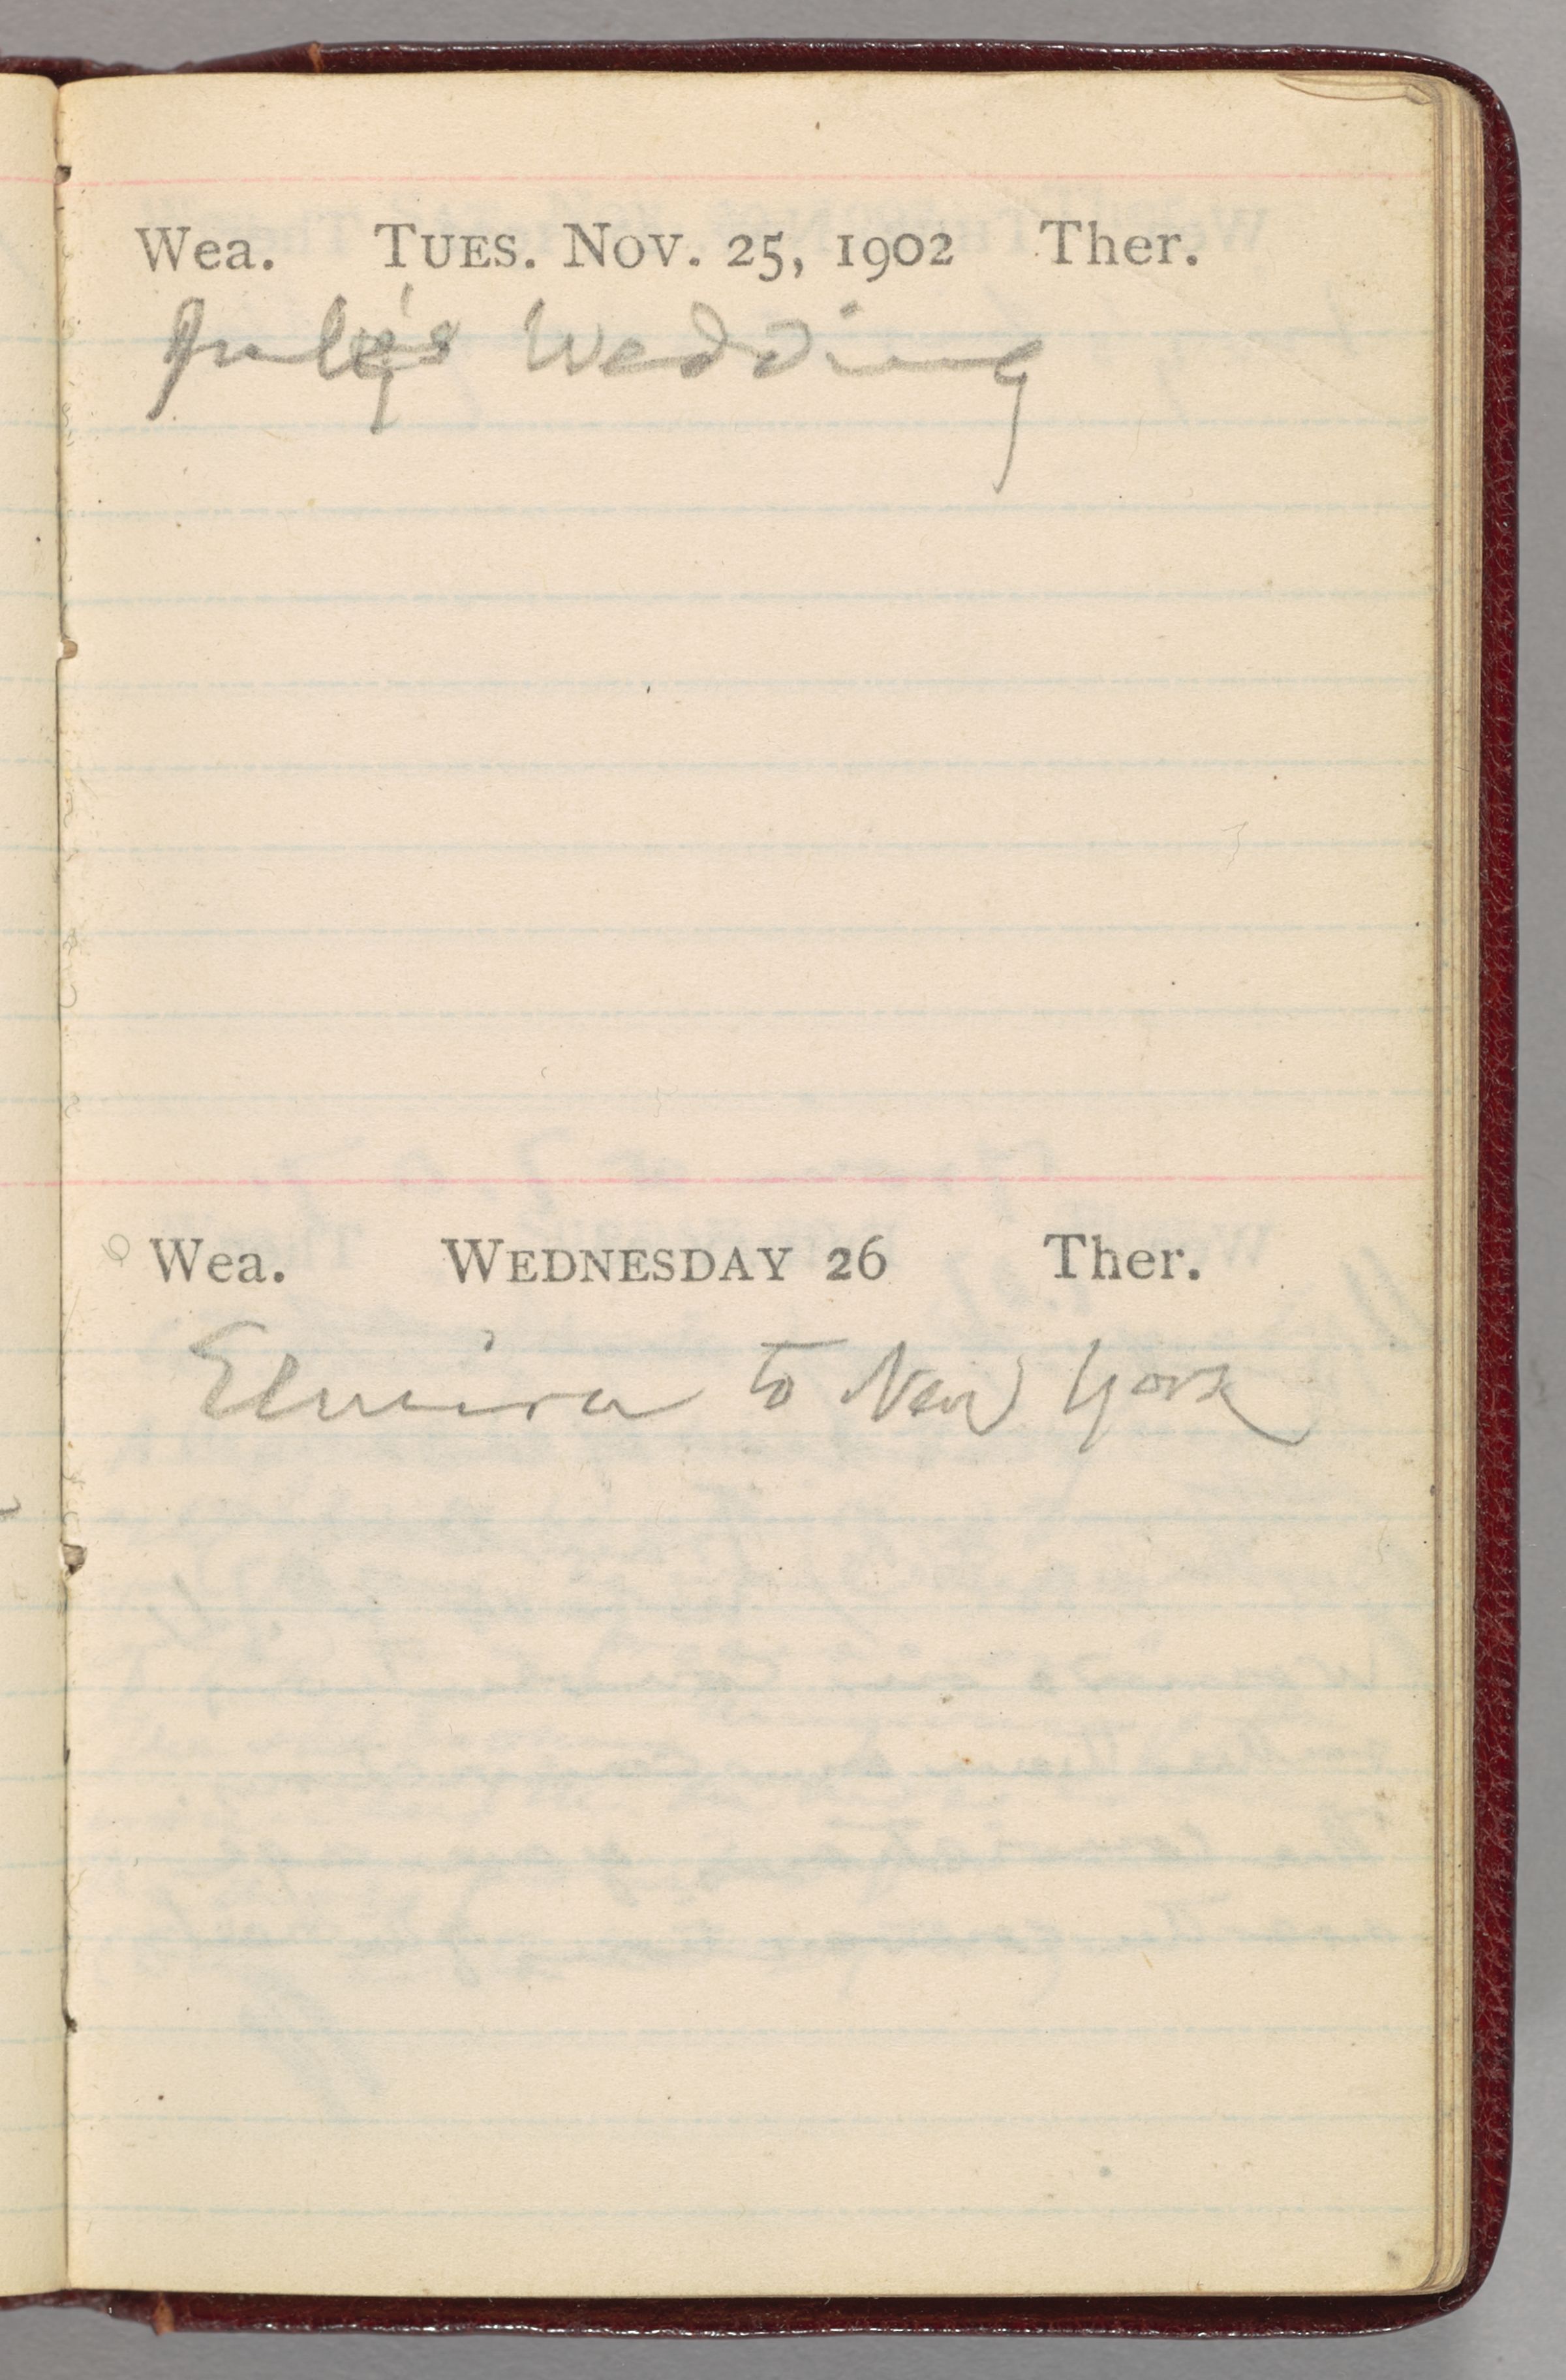 Wea. TUES. NOV. 25, 1902 Ther.
July's Wedding
Wea. WEDNESDAY 26 Ther.
Elmira to New York